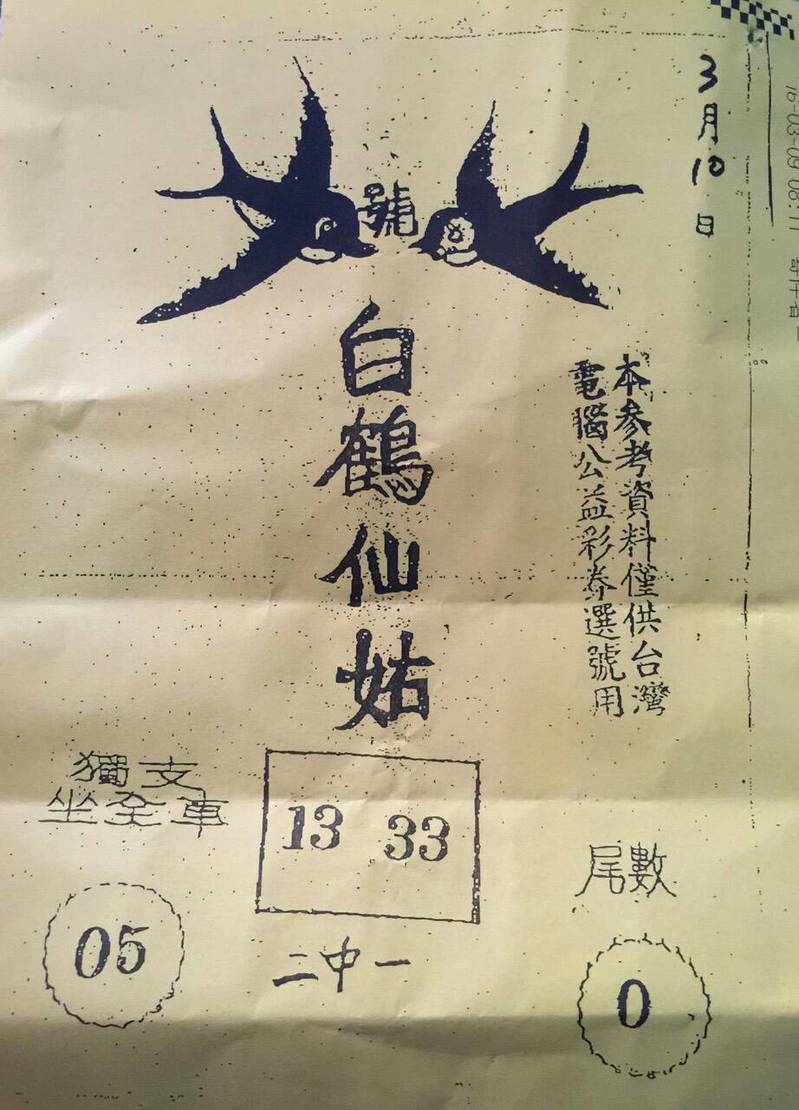 3月10日
16-03-09 08:11 寄件者
號
白鶴仙姑
本參考資料僅供台灣
電獨公益彩券選號用
獨支
坐全車
05
13 33
二中一
尾數
0